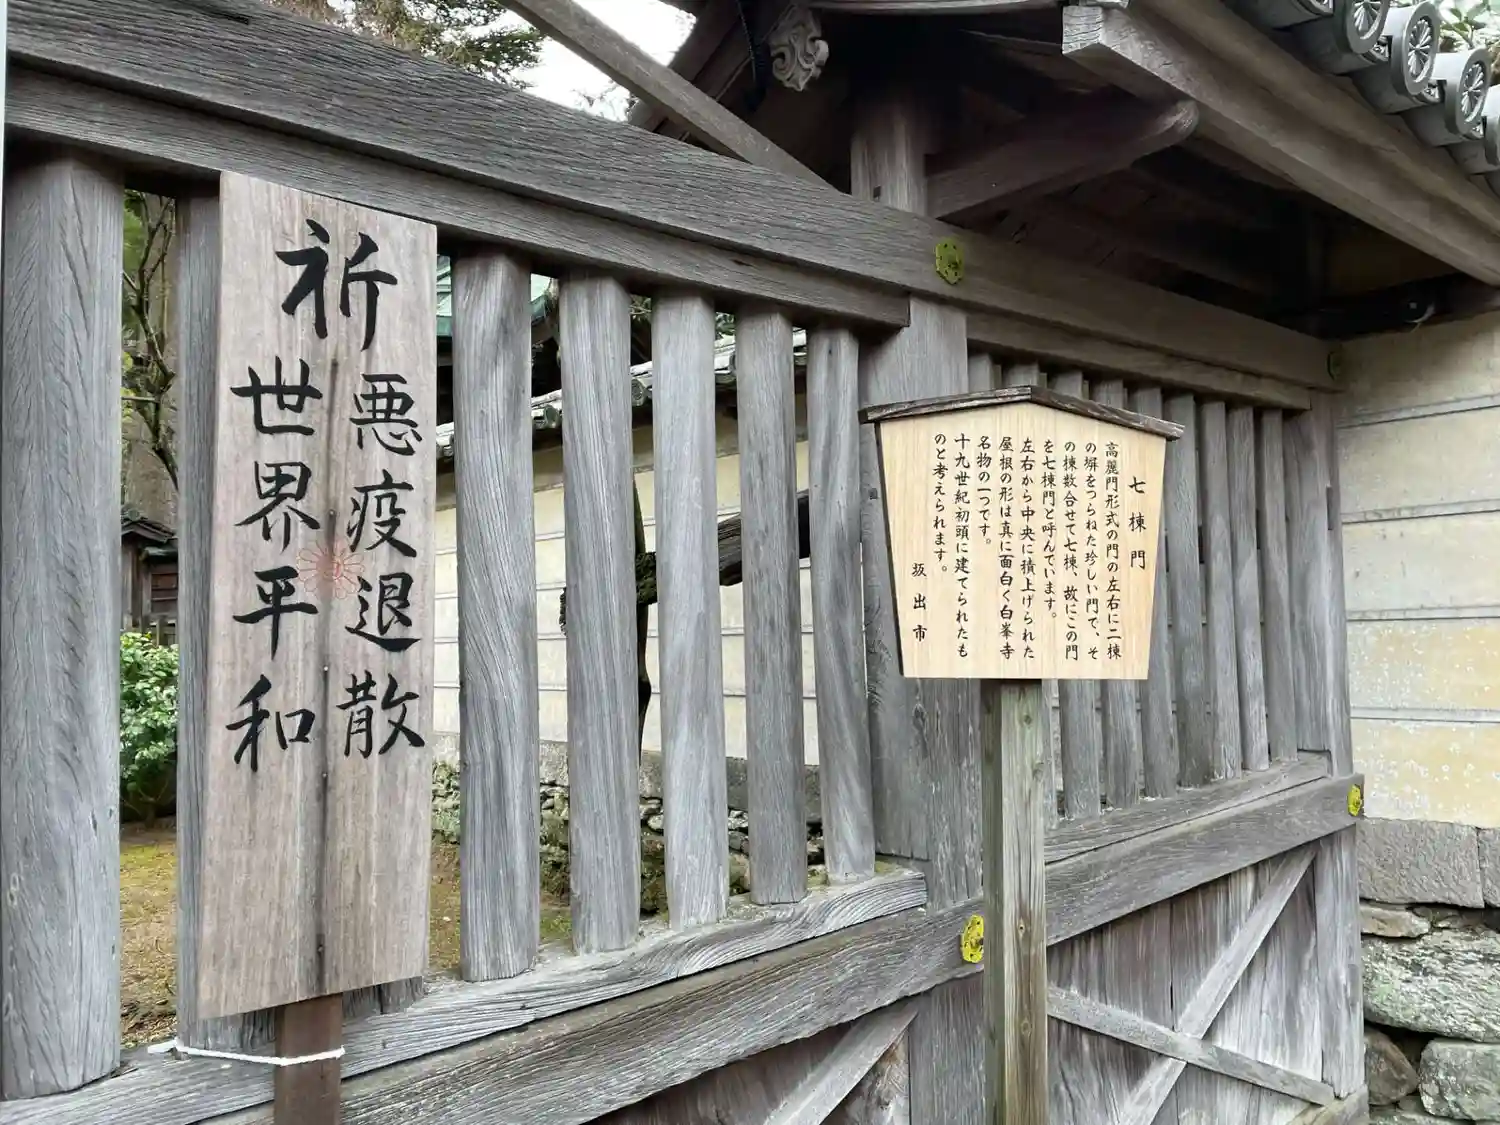 祈
悪疫退散
世界平和
七棟門
高麗門形式の門の左右に二棟
の塀をつらねた珍しい門で、そ
の棟数合せて七棟、故にこの門
を七棟門と呼んでいます。
左右から中央に積上げられた
屋根の形は真に面白く白峯寺
名物の一つです。
十九世紀初頭に建てられたも
のと考えられます。
坂出市